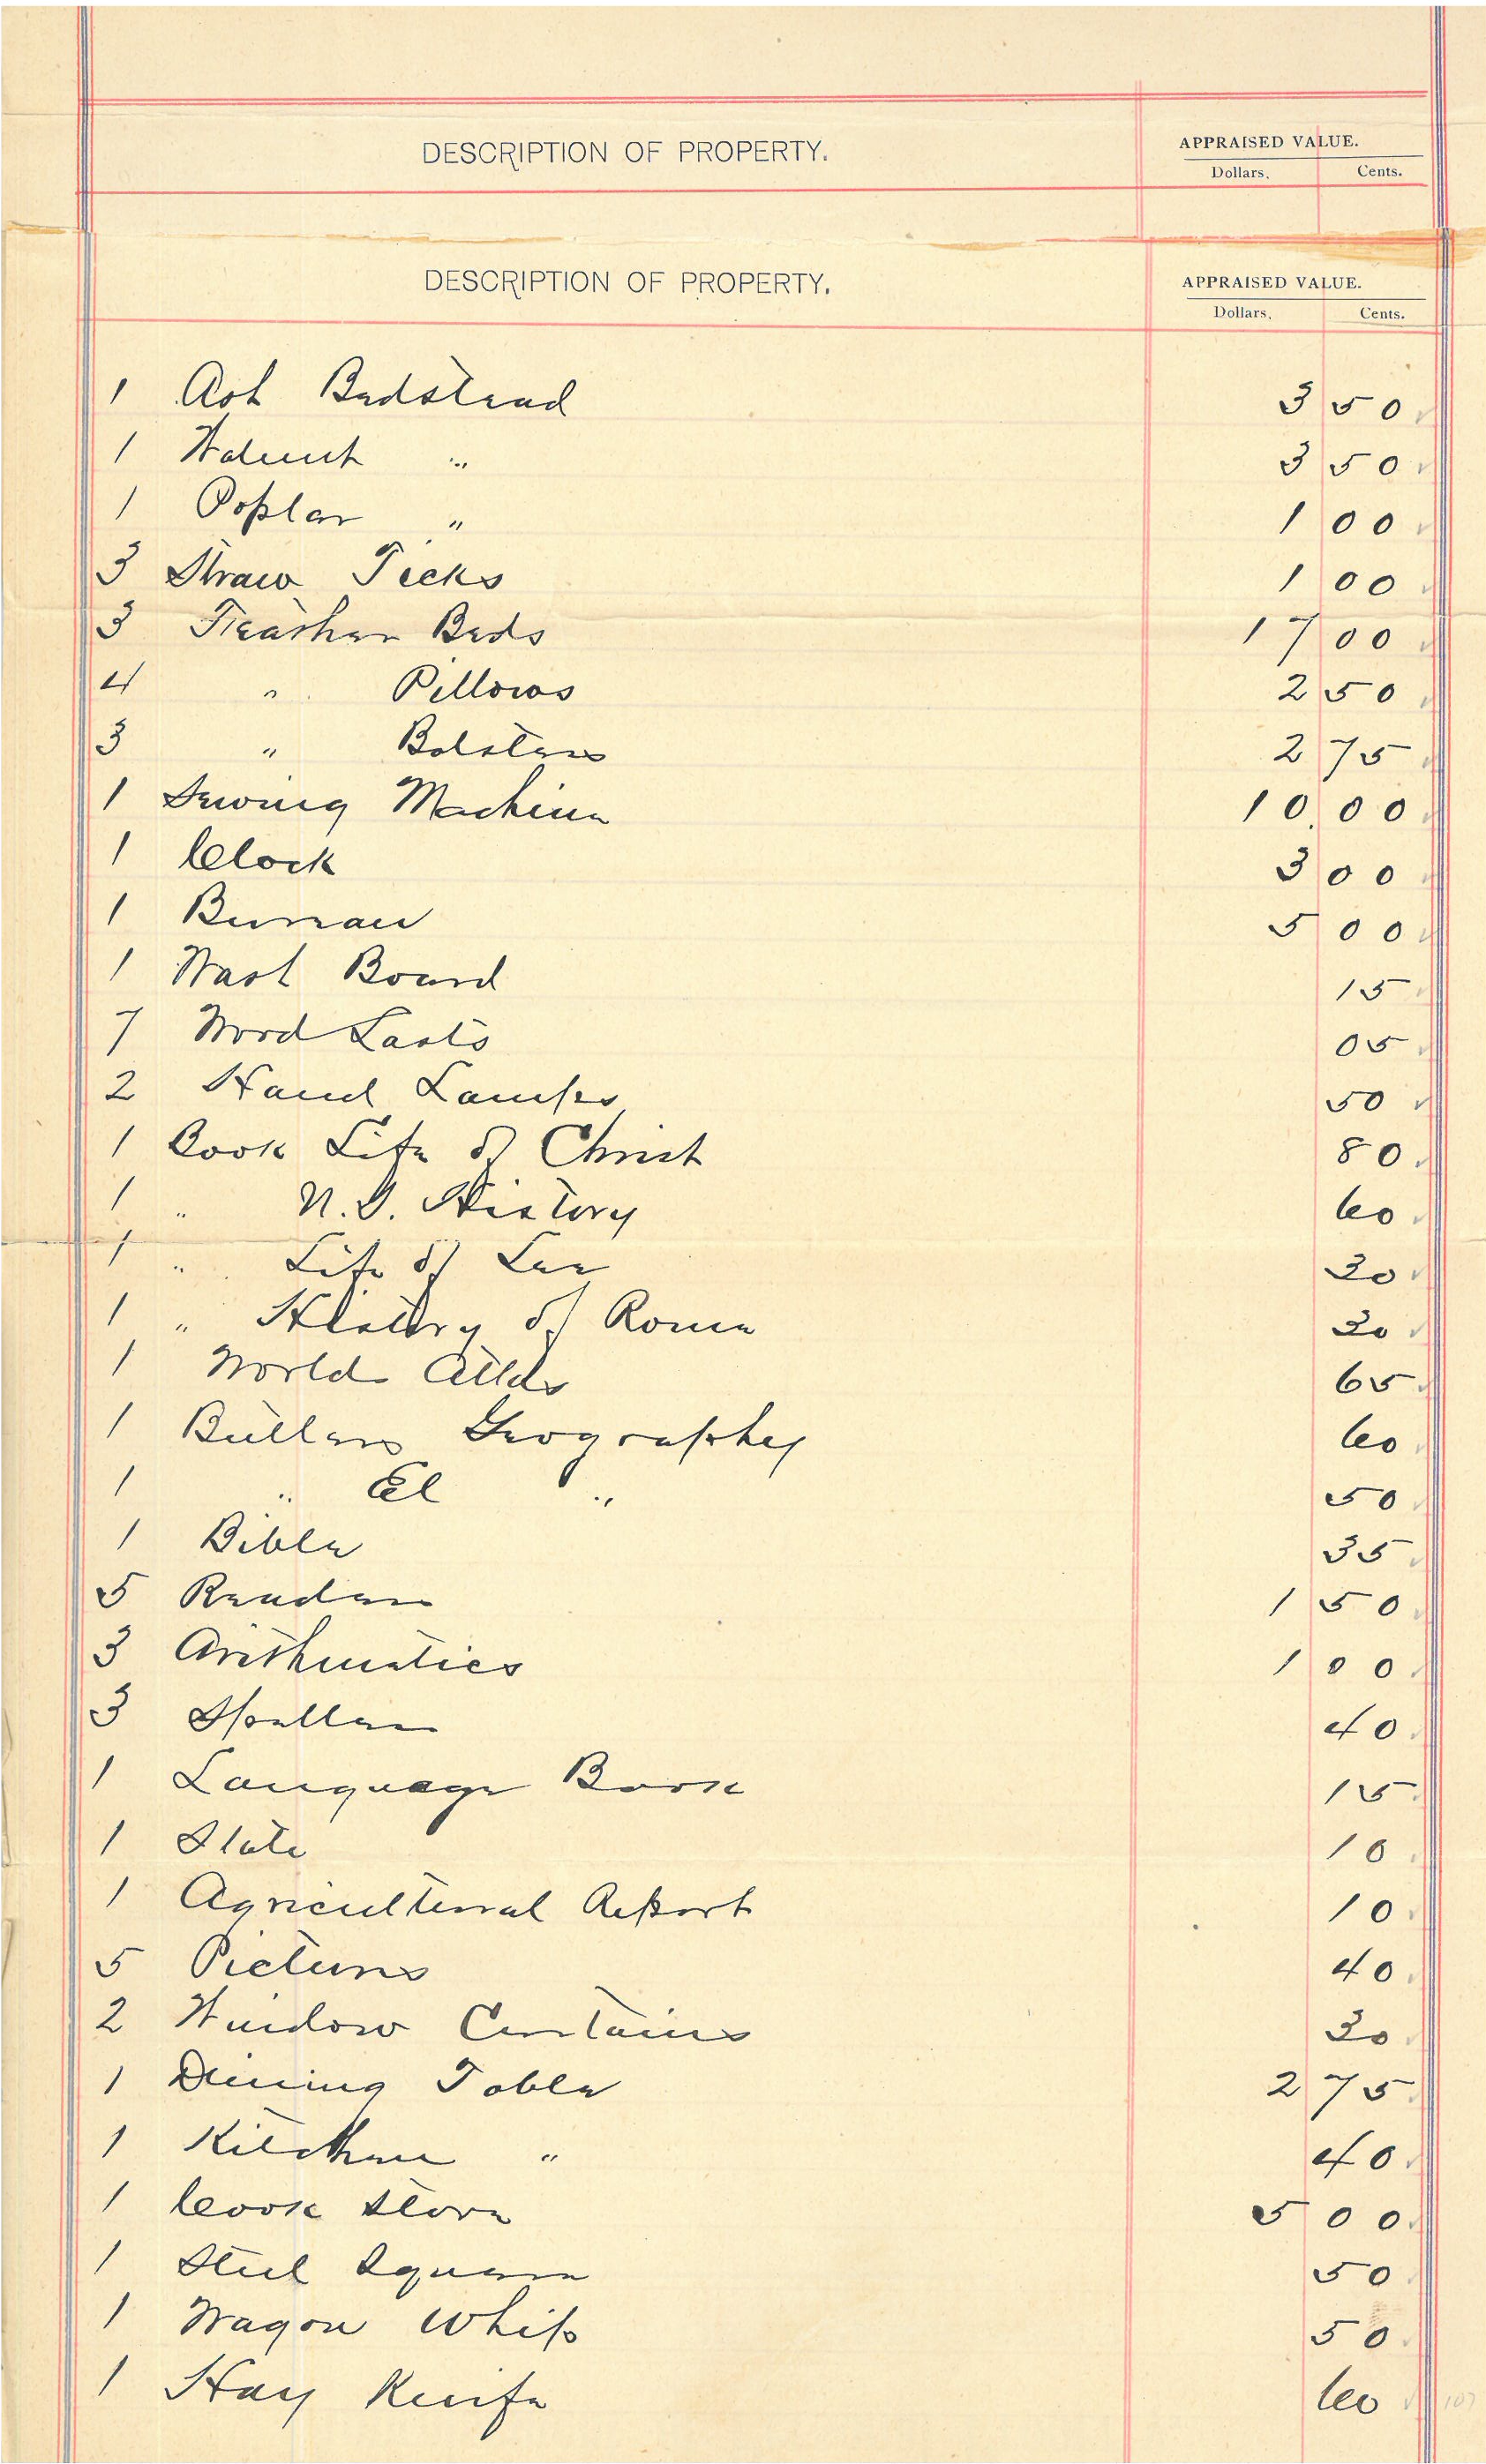 DESCRIPTION OF PROPERTY. APPRAISED VALUE.
Dollars. Cents.
DESCRIPTION OF PROPERTY. APPRAISED VALUE.
Dollars. Cents.
1 Ash Bedstead 3 50
1 Walnut " 3 50
1 Poplar " 1 00
3 Straw Ticks 1 00
3 Feather Beds 17 00
4 " Pillows 2 50
3 " Bolsters 2 75
1 Sewing Machine 10.00
1 Clock 3 00
1 Bureau 5 00
1 Wash Board 15
7 Wood Lasts 05
2 Hand Lamps 50
1 Book Life of Christ 80
1 " History 60
1 " Life of Lee 30
1 " History of Rome 30
1 World Atlas 65
1 Butlers Geography 60
1 " El " 50
1 Bible 35
5 Readers 1 50
3 Arithmatics 1 00
3 Spellers 40
1 Language Book 15
1 Slate 10
1 Agricultural Report 10
5 Pictures 40
2 Window Curtains 30
1 Dining Table 2 75
1 Kitchen " 40
1 Cook Stove 5 00
1 Steel Square 50
1 Wagon Whip 50
1 Hay Knife 60